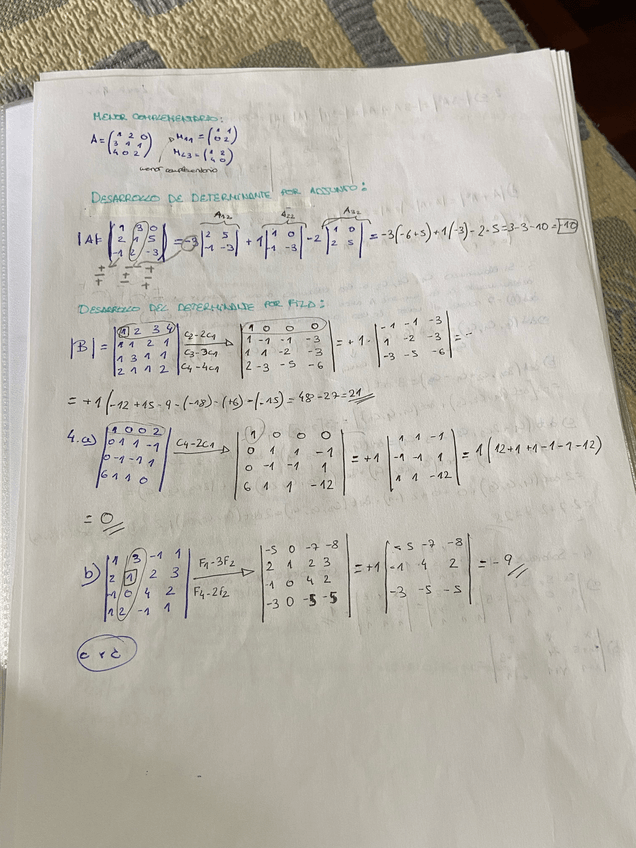 MENOR COMPLEMENTARIO:
A = (1 2 0 / 3 1 1 / 4 0 2) , M11 = (1 1 / 0 2)
M23 = (1 2 / 4 0)
menor complementario
DESARROLLO DE DETERMINANTE POR ADJUNTO:
A12 A22 A32
|A| = |1 3 0 / 2 1 5 / -1 2 -3| = -3 |2 5 / -1 -3| + 1 |1 0 / -1 -3| - 2 |1 0 / 2 5| = -3(-6+5) + 1(-3) - 2·5 = 3-3-10 = -10
+ - +
DESARROLLO DEL DETERMINANTE POR FILA:
|B| = |1 2 3 4 / 1 1 2 1 / 1 3 1 1 / 2 1 1 2| C2-2C1 C3-3C1 C4-4C1 → |1 0 0 0 / 1 -1 -1 -3 / 1 1 -2 -3 / 2 -3 -5 -6| = +1 · |-1 -1 -3 / 1 -2 -3 / -3 -5 -6| = ...
= +1 (-12+15-9-(-18)-(+6)-(-15) = 48-27 = 21
4. a) |1 0 0 2 / 0 1 1 -1 / 0 -1 -1 1 / 6 1 1 0| C4-2C1 → |1 0 0 0 / 0 1 1 -1 / 0 -1 -1 1 / 6 1 1 -12| = +1 |1 1 -1 / -1 -1 1 / 1 1 -12| = 1 (12+1+1-1-1-12)
= 0
b) |1 3 -1 1 / 2 1 2 3 / -1 0 4 2 / 1 2 -1 1| F1-3F2 F4-2F2 → |-5 0 -7 -8 / 2 1 2 3 / -1 0 4 2 / -3 0 -5 -5| = +1 |-5 -7 -8 / -1 4 2 / -3 -5 -5| = -9